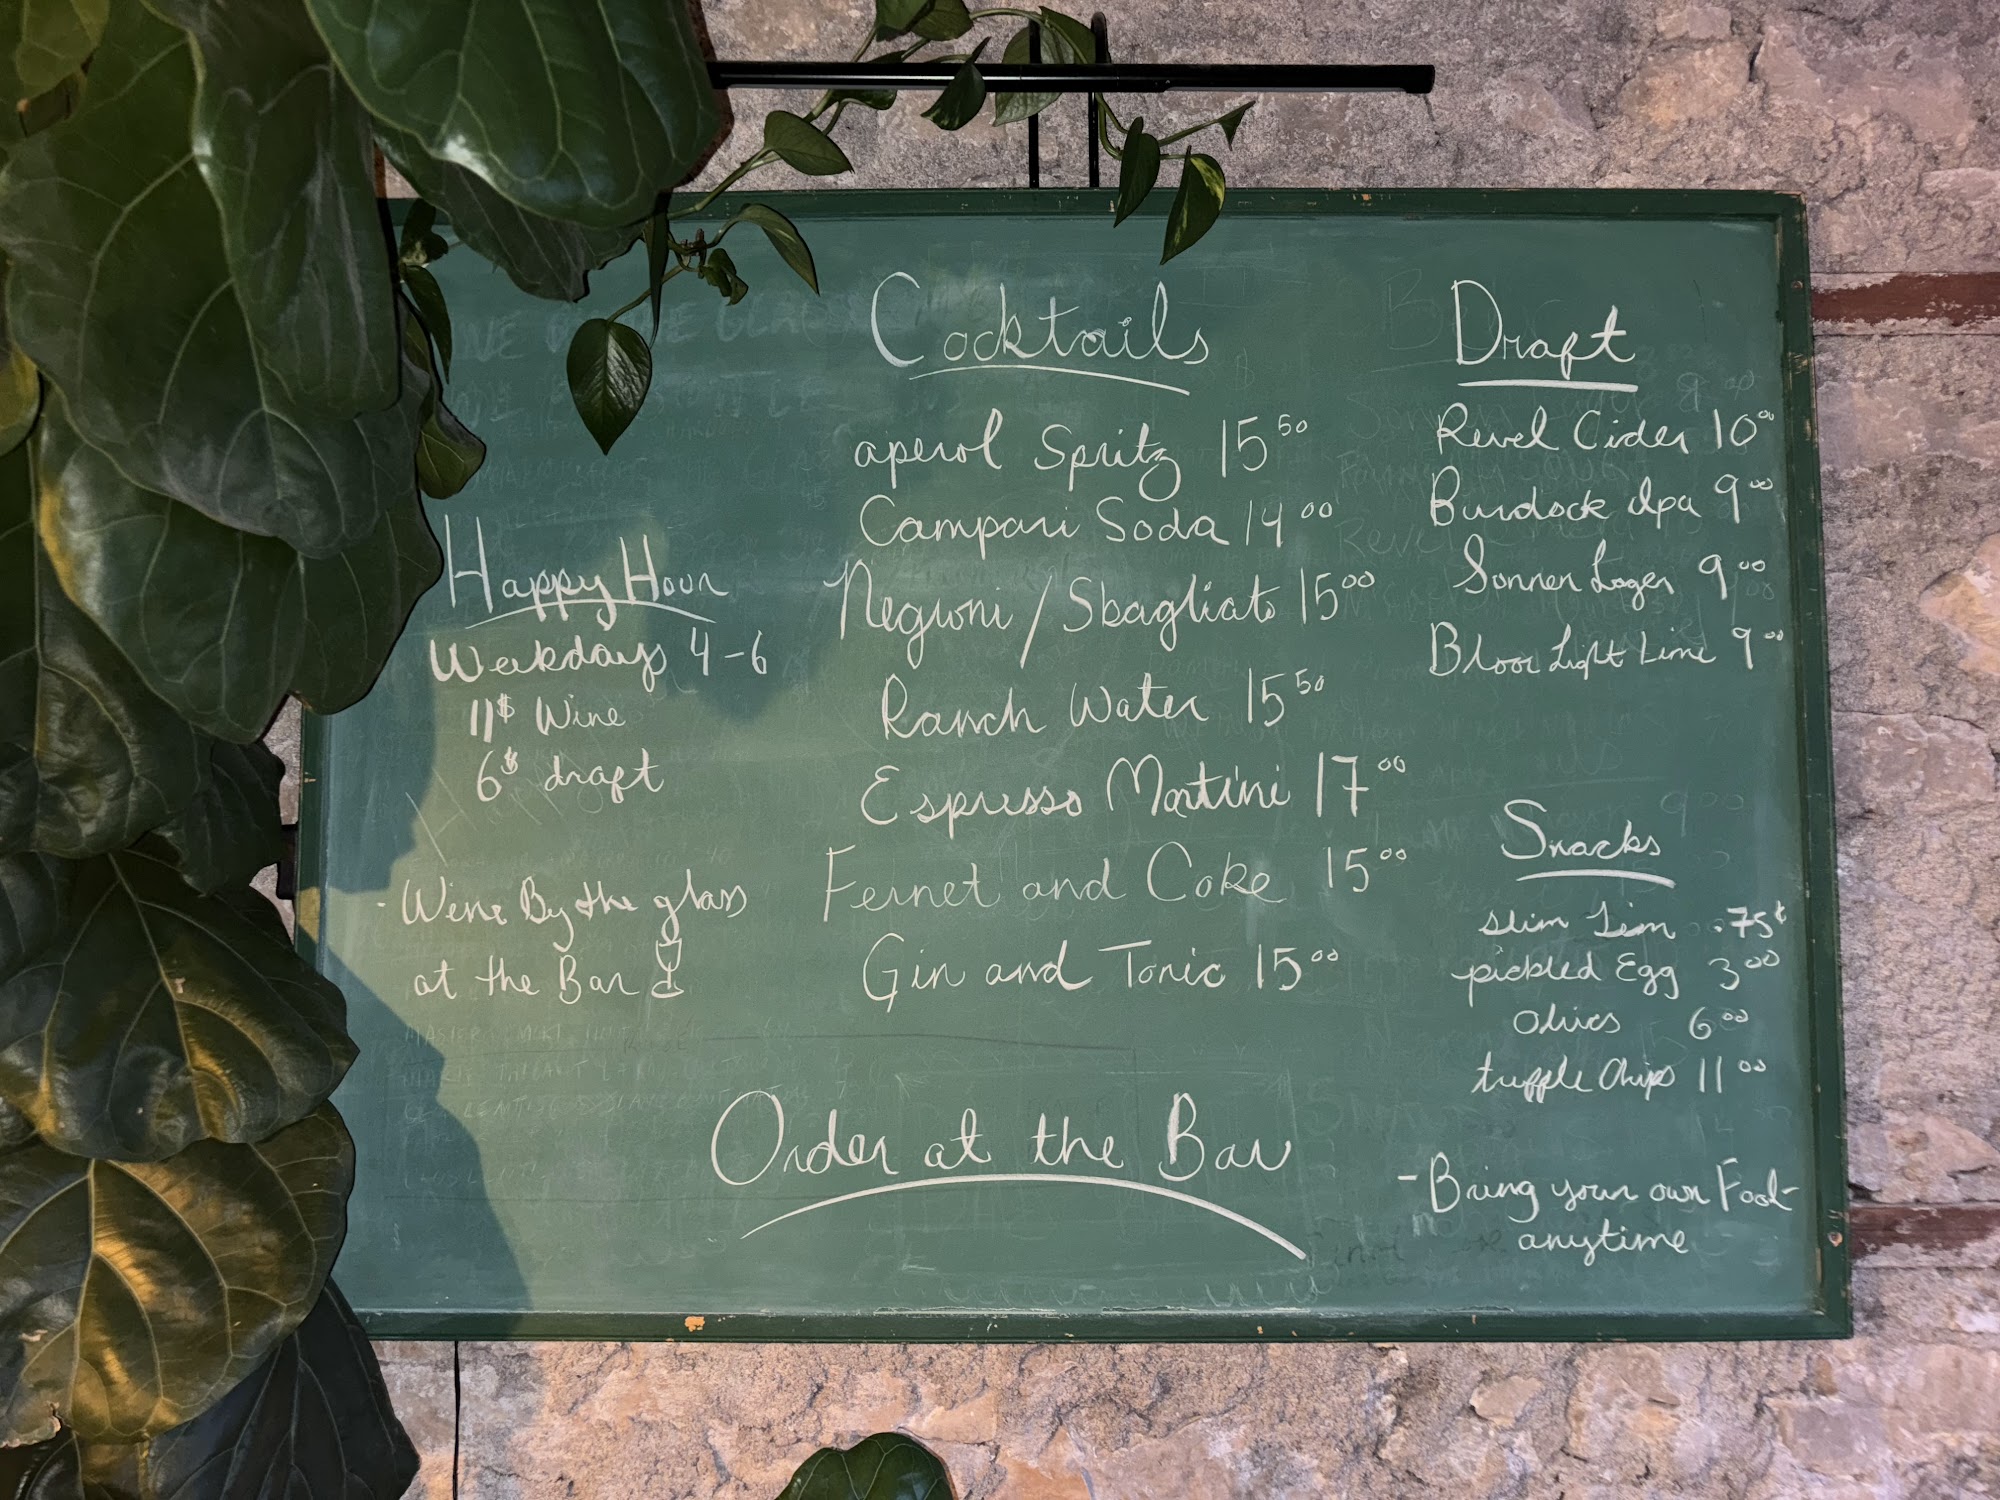 Happy Hour
Weekdays 4-6
11$ Wine
6$ draft
- Wine By the glass
at the Bar
Cocktails
aperol Spritz 15 50
Campari Soda 14 00
Negroni / Sbagliato 15 00
Ranch Water 15 50
Espresso Martini 17 00
Fernet and Coke 15 00
Gin and Tonic 15 00
Order at the Bar
Draft
Revel Cider 10 00
Burdock Ipa 9 00
Sonnen Lager 9 00
Bloor Light Lime 9 00
Snacks
slim Jim .75¢
pickled Egg 3 00
Olives 6 00
truffle Chips 11 00
- Bring your own Food -
anytime